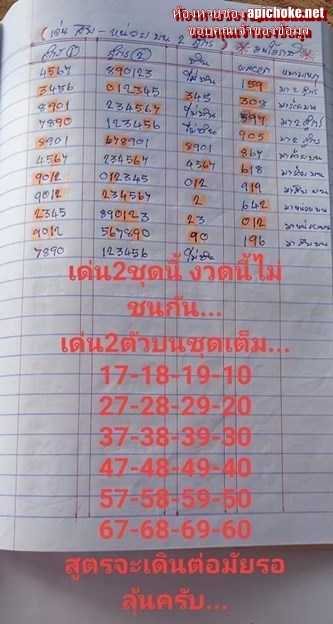 ห้องหายของ apichoke.net
ขอบคุณเจ้าของข้อมูล
(เด่น สิบ - หน่วย บน 2 สูตร)
สูตร (1) สูตร (2) ผลออก
4567 890123 ไม่ชน
3456 012345 345 159 มา 2 สูตร
8901 234567 ไม่ชน 308
7890 123456 ไม่ชน 597 มา 2 สูตร
8901 678901 8901 905 มา 2 สูตร
4567 234567 4567 867
9012 012345 012 618
9012 234567 2 919
2345 890123 23 642
9012 567890 90 012
7890 123456 ไม่ชน 196
เด่น2ชุดนี้ งวดนี้ไม่
ชนกัน...
เด่น2ตัวบนชุดเต็ม...
17-18-19-10
27-28-29-20
37-38-39-30
47-48-49-40
57-58-59-50
67-68-69-60
สูตรจะเดินต่อมัยรอ
ลุ้นครับ...